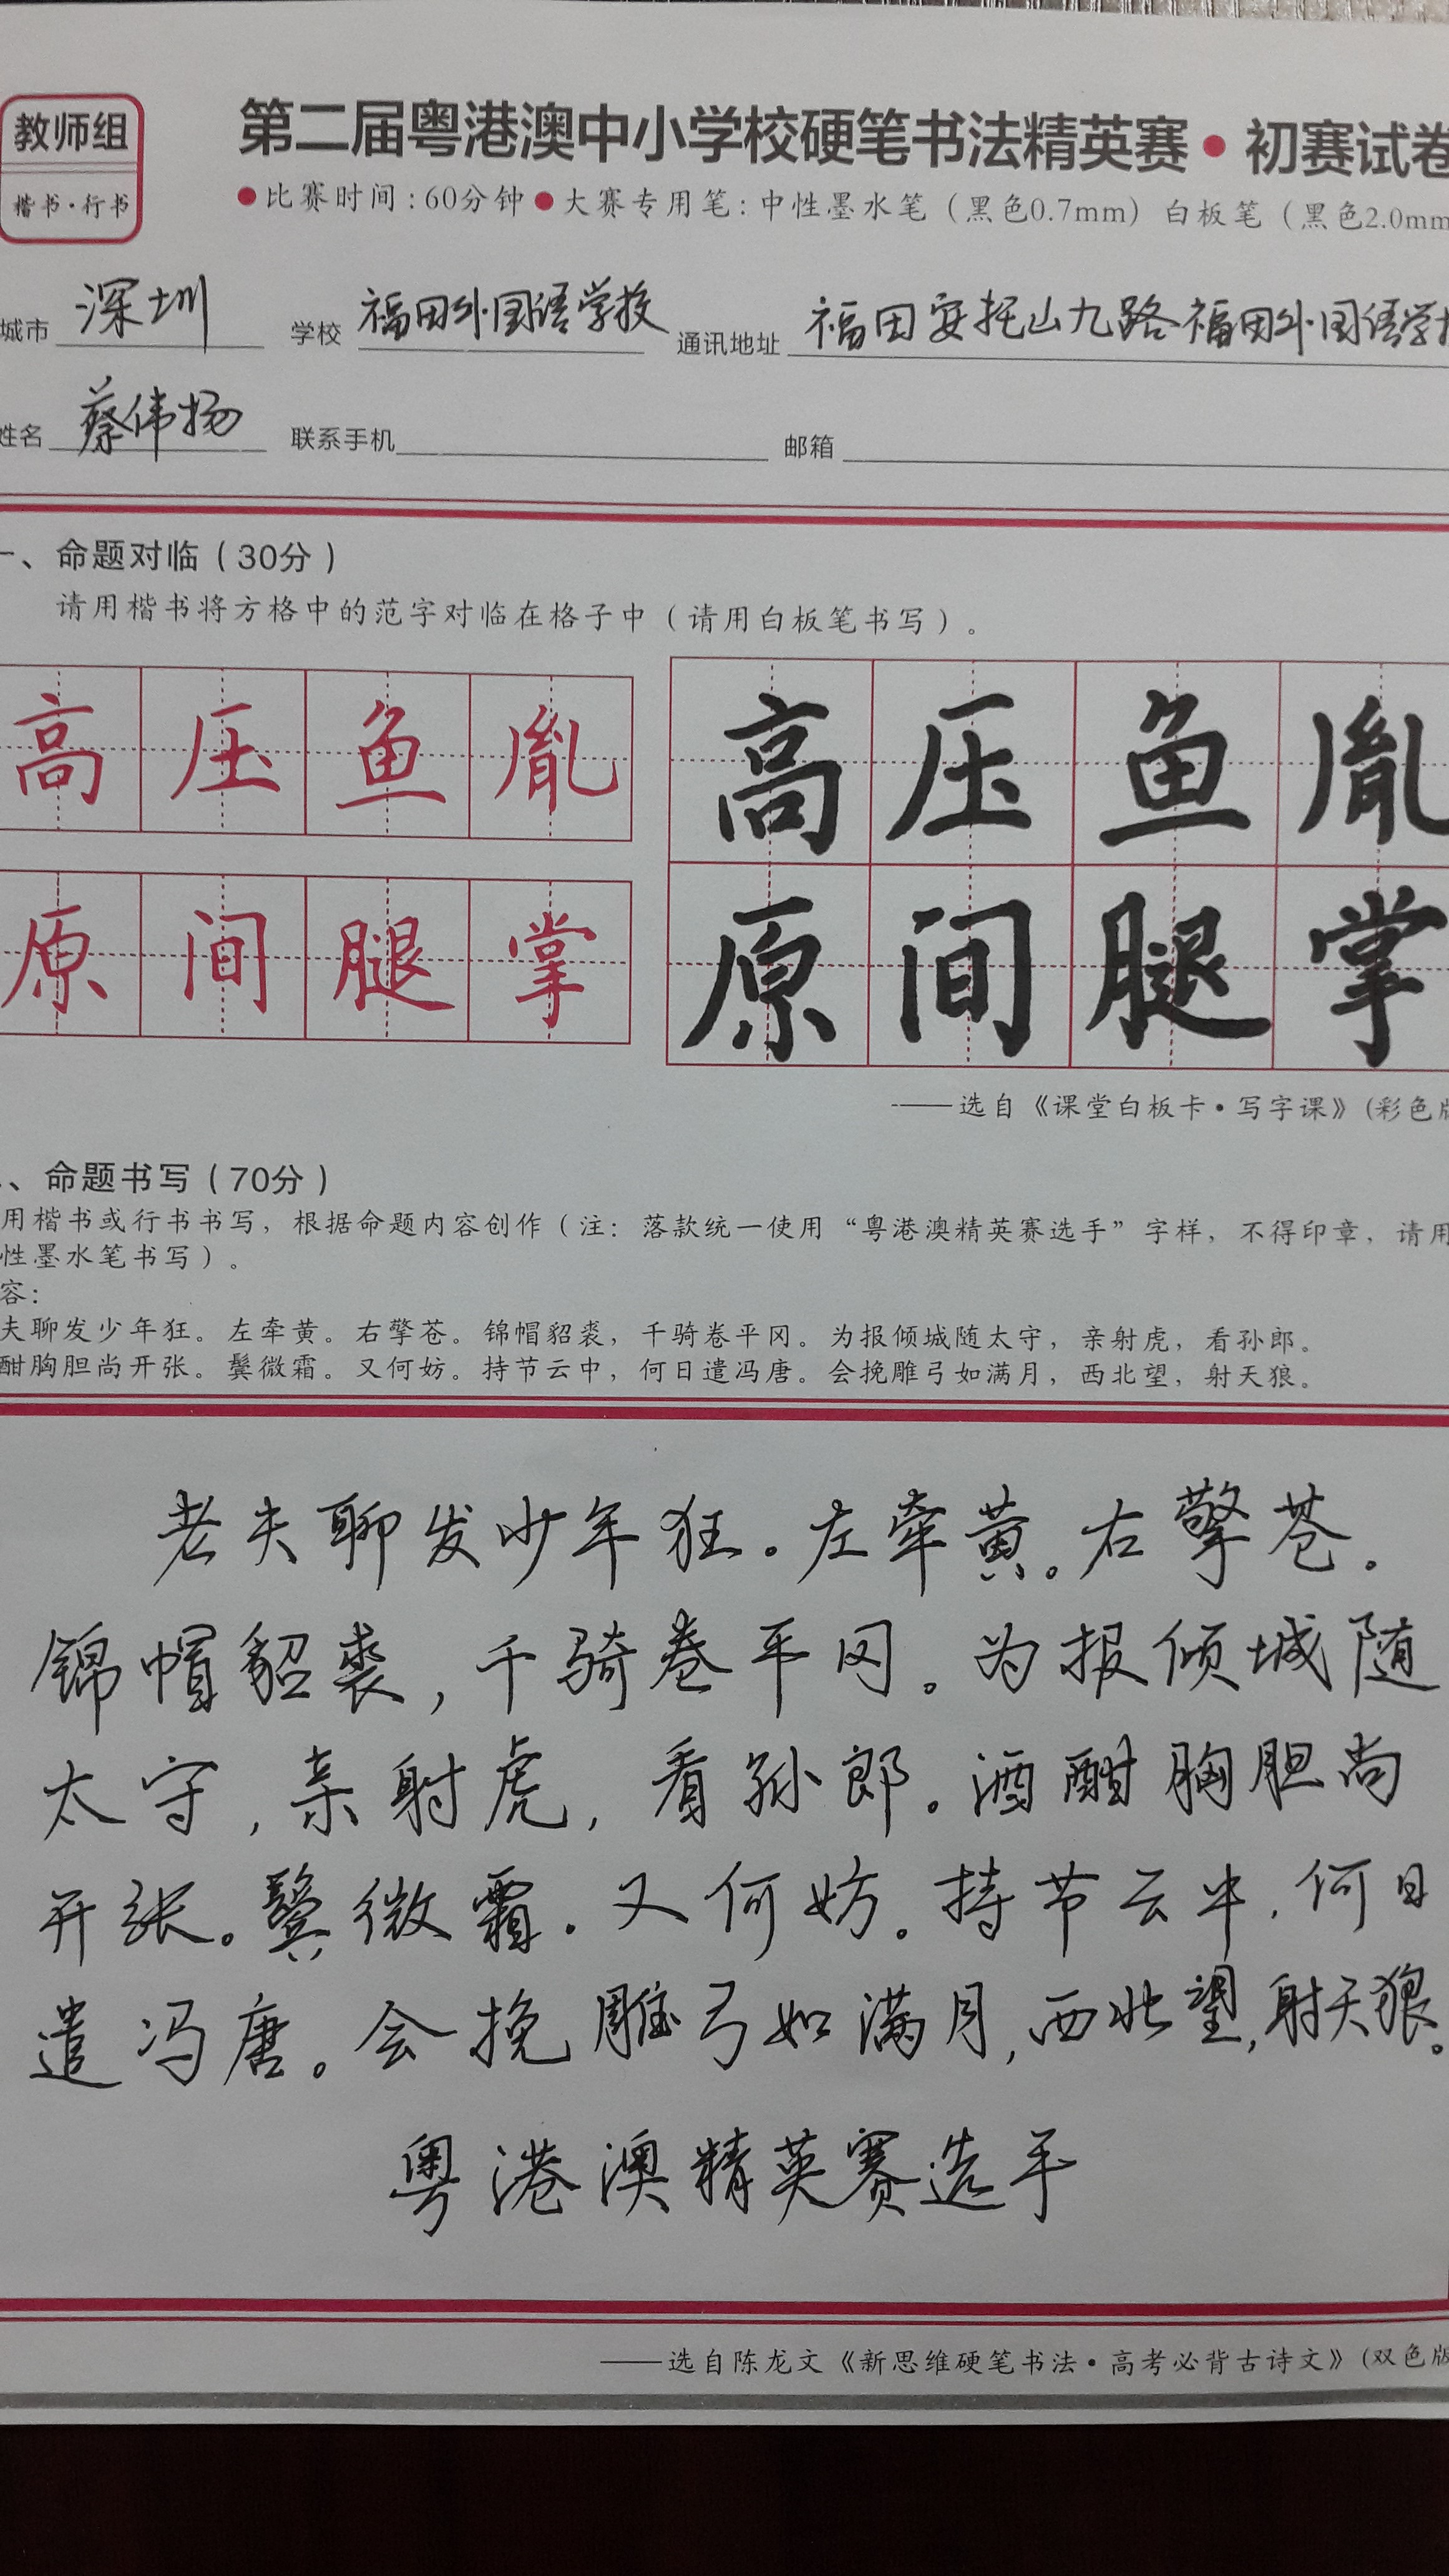 教师组
楷书·行书
第二届粤港澳中小学校硬笔书法精英赛·初赛试卷
●比赛时间:60分钟●大赛专用笔:中性墨水笔（黑色0.7mm）白板笔（黑色2.0mm
城市 深圳 学校 福田外国语学校 通讯地址 福田安托山九路福田外国语学校
姓名 蔡伟扬 联系手机 邮箱
一、命题对临（30分）
请用楷书将方格中的范字对临在格子中（请用白板笔书写）。
高压鱼胤 高压鱼胤
原间腿掌 原间腿掌
——选自《课堂白板卡·写字课》(彩色版
、命题书写（70分）
用楷书或行书书写，根据命题内容创作（注：落款统一使用“粤港澳精英赛选手”字样，不得印章，请用
性墨水笔书写）。
容：
夫聊发少年狂。左牵黄。右擎苍。锦帽貂裘，千骑卷平冈。为报倾城随太守，亲射虎，看孙郎。
酣胸胆尚开张。鬓微霜。又何妨。持节云中，何日遣冯唐。会挽雕弓如满月，西北望，射天狼。
老夫聊发少年狂。左牵黄。右擎苍。
锦帽貂裘，千骑卷平冈。为报倾城随
太守，亲射虎，看孙郎。酒酣胸胆尚
开张。鬓微霜。又何妨。持节云中，何日
遣冯唐。会挽雕弓如满月，西北望，射天狼。
粤港澳精英赛选手
——选自陈龙文《新思维硬笔书法·高考必背古诗文》(双色版